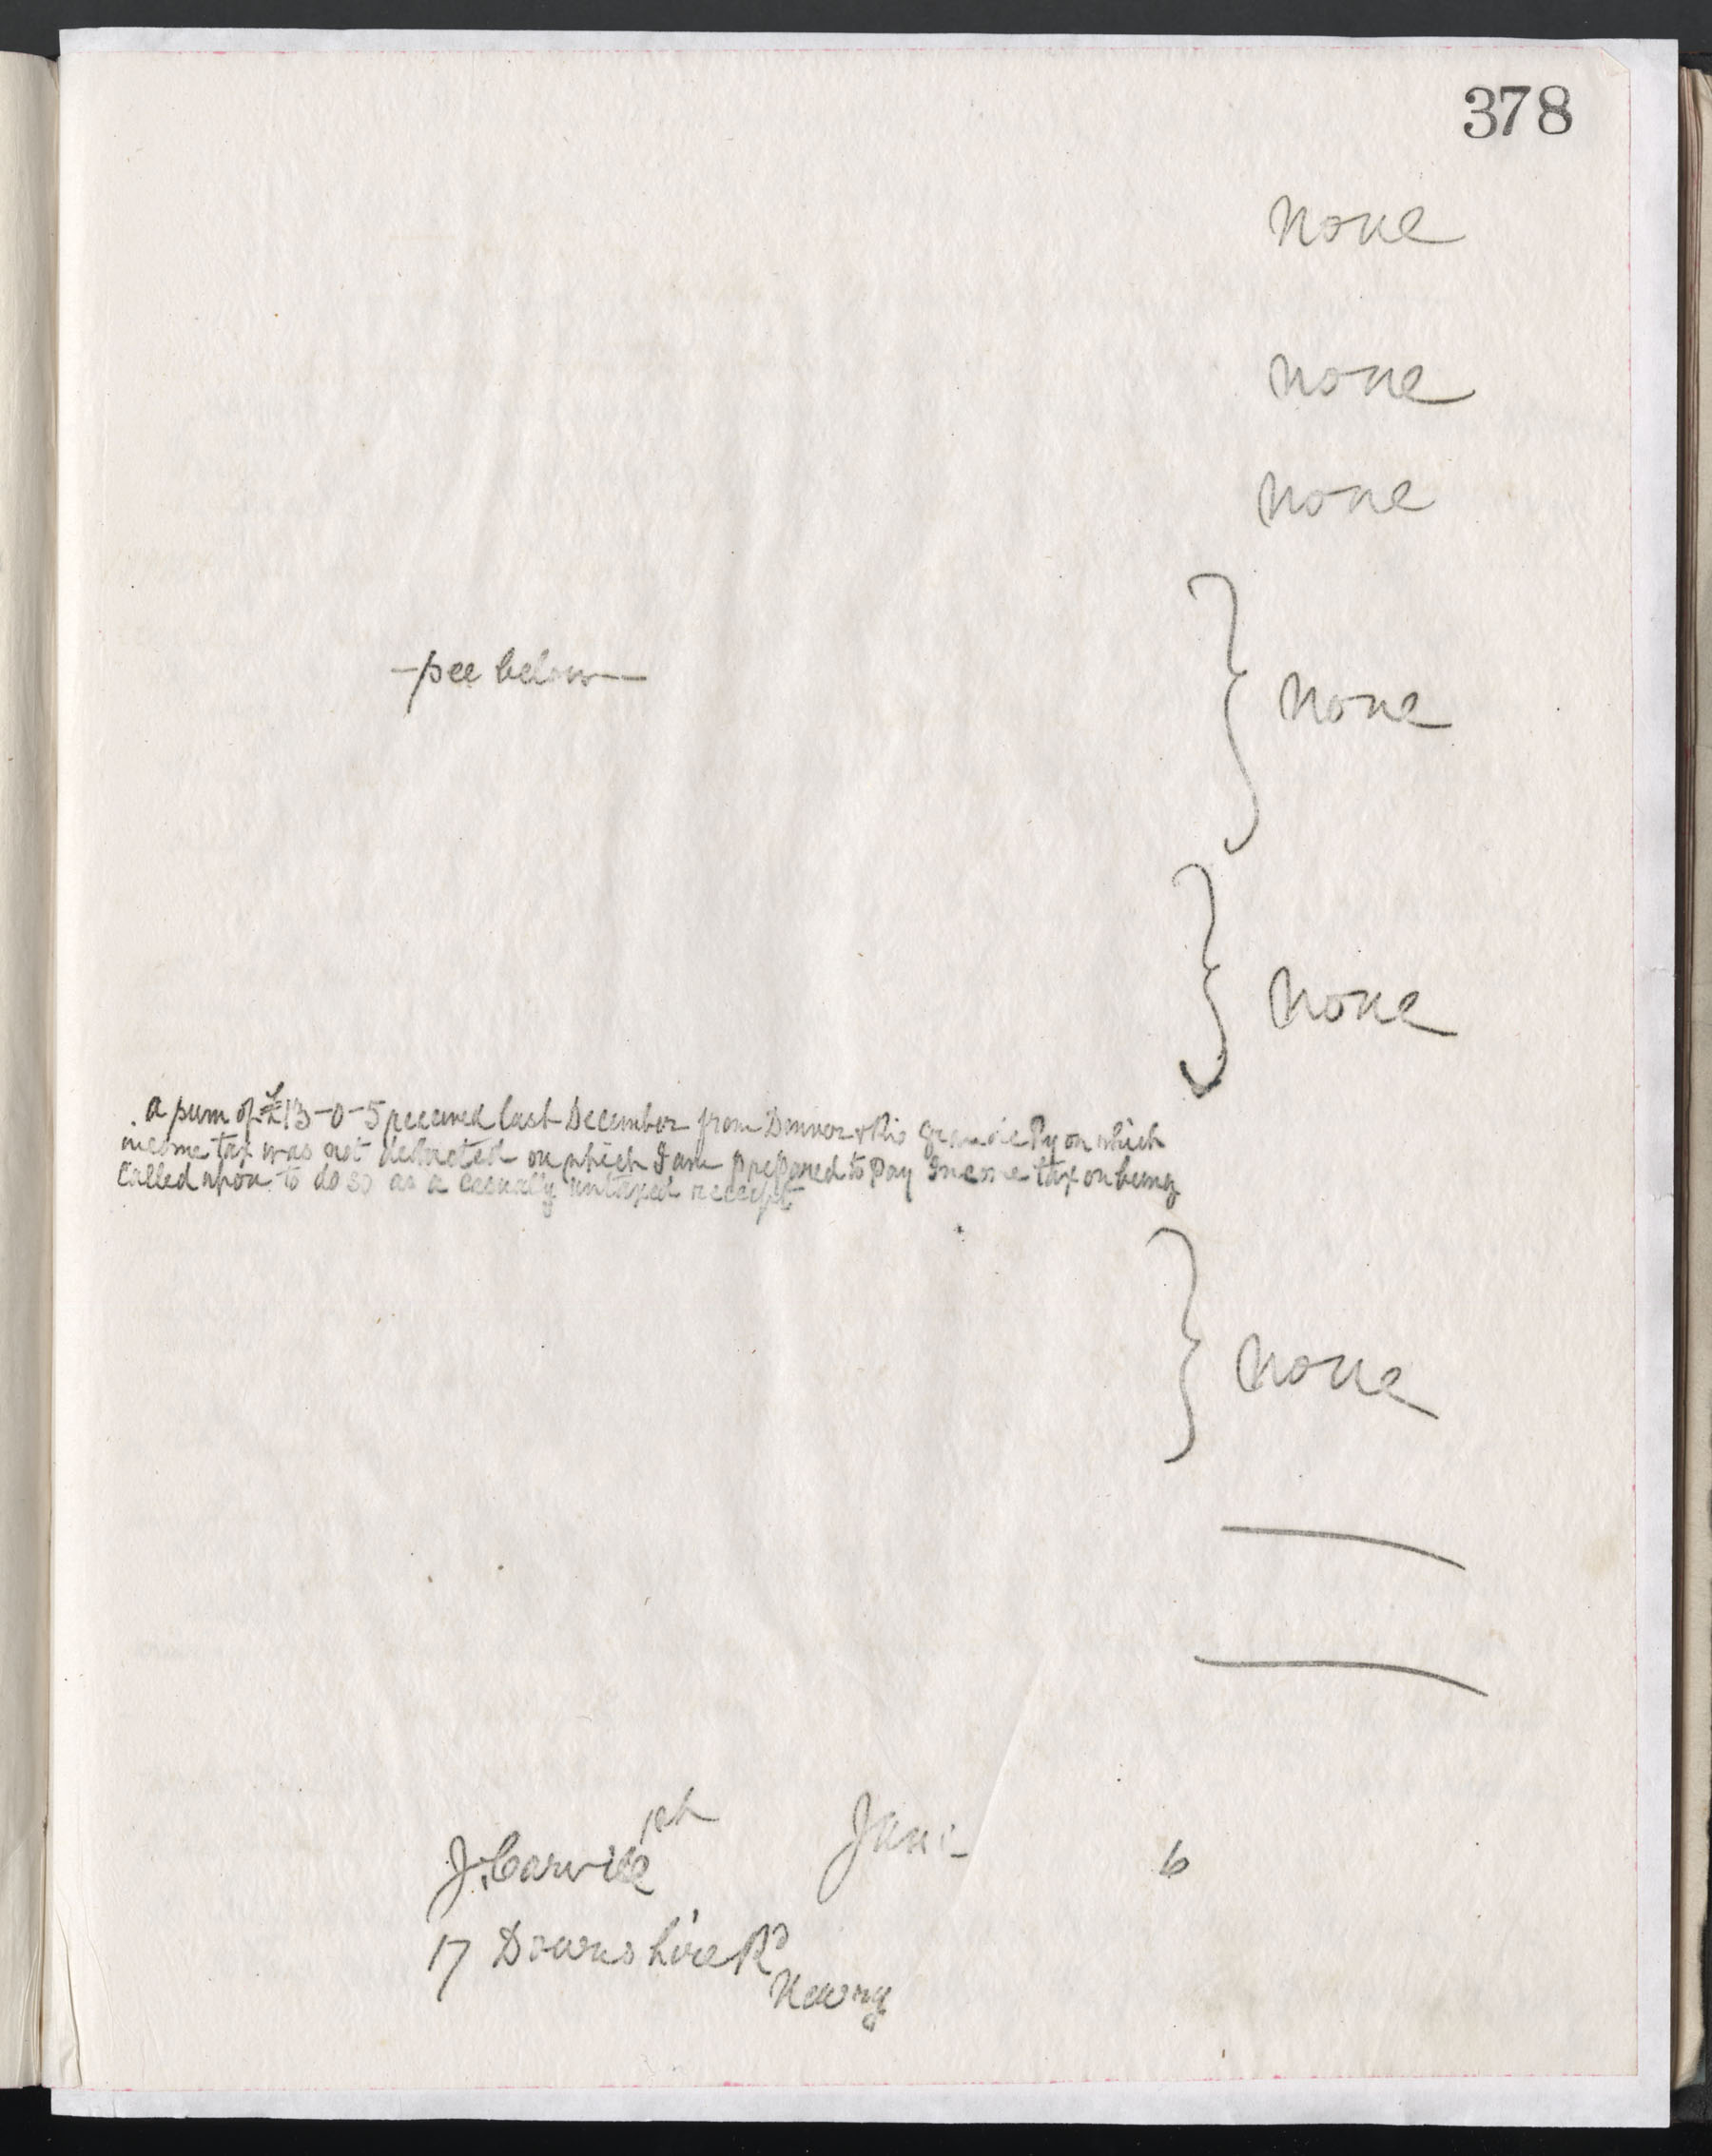 378
None
None
None
—see below—
None
None
A sum of £13-0-5 received last December from Denver & Rio Grande Ry on which
income tax was not deducted on which I am prepared to pay Income tax on being
called upon to do so as a casually untaxed receipt
None
J. Carvill
June
6
17 Downshire Rd
Newry